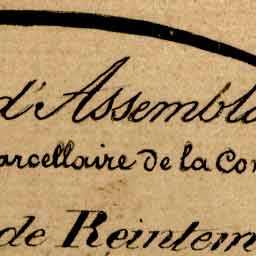 d'Assembla
arcellaire de la Con
de Reintem